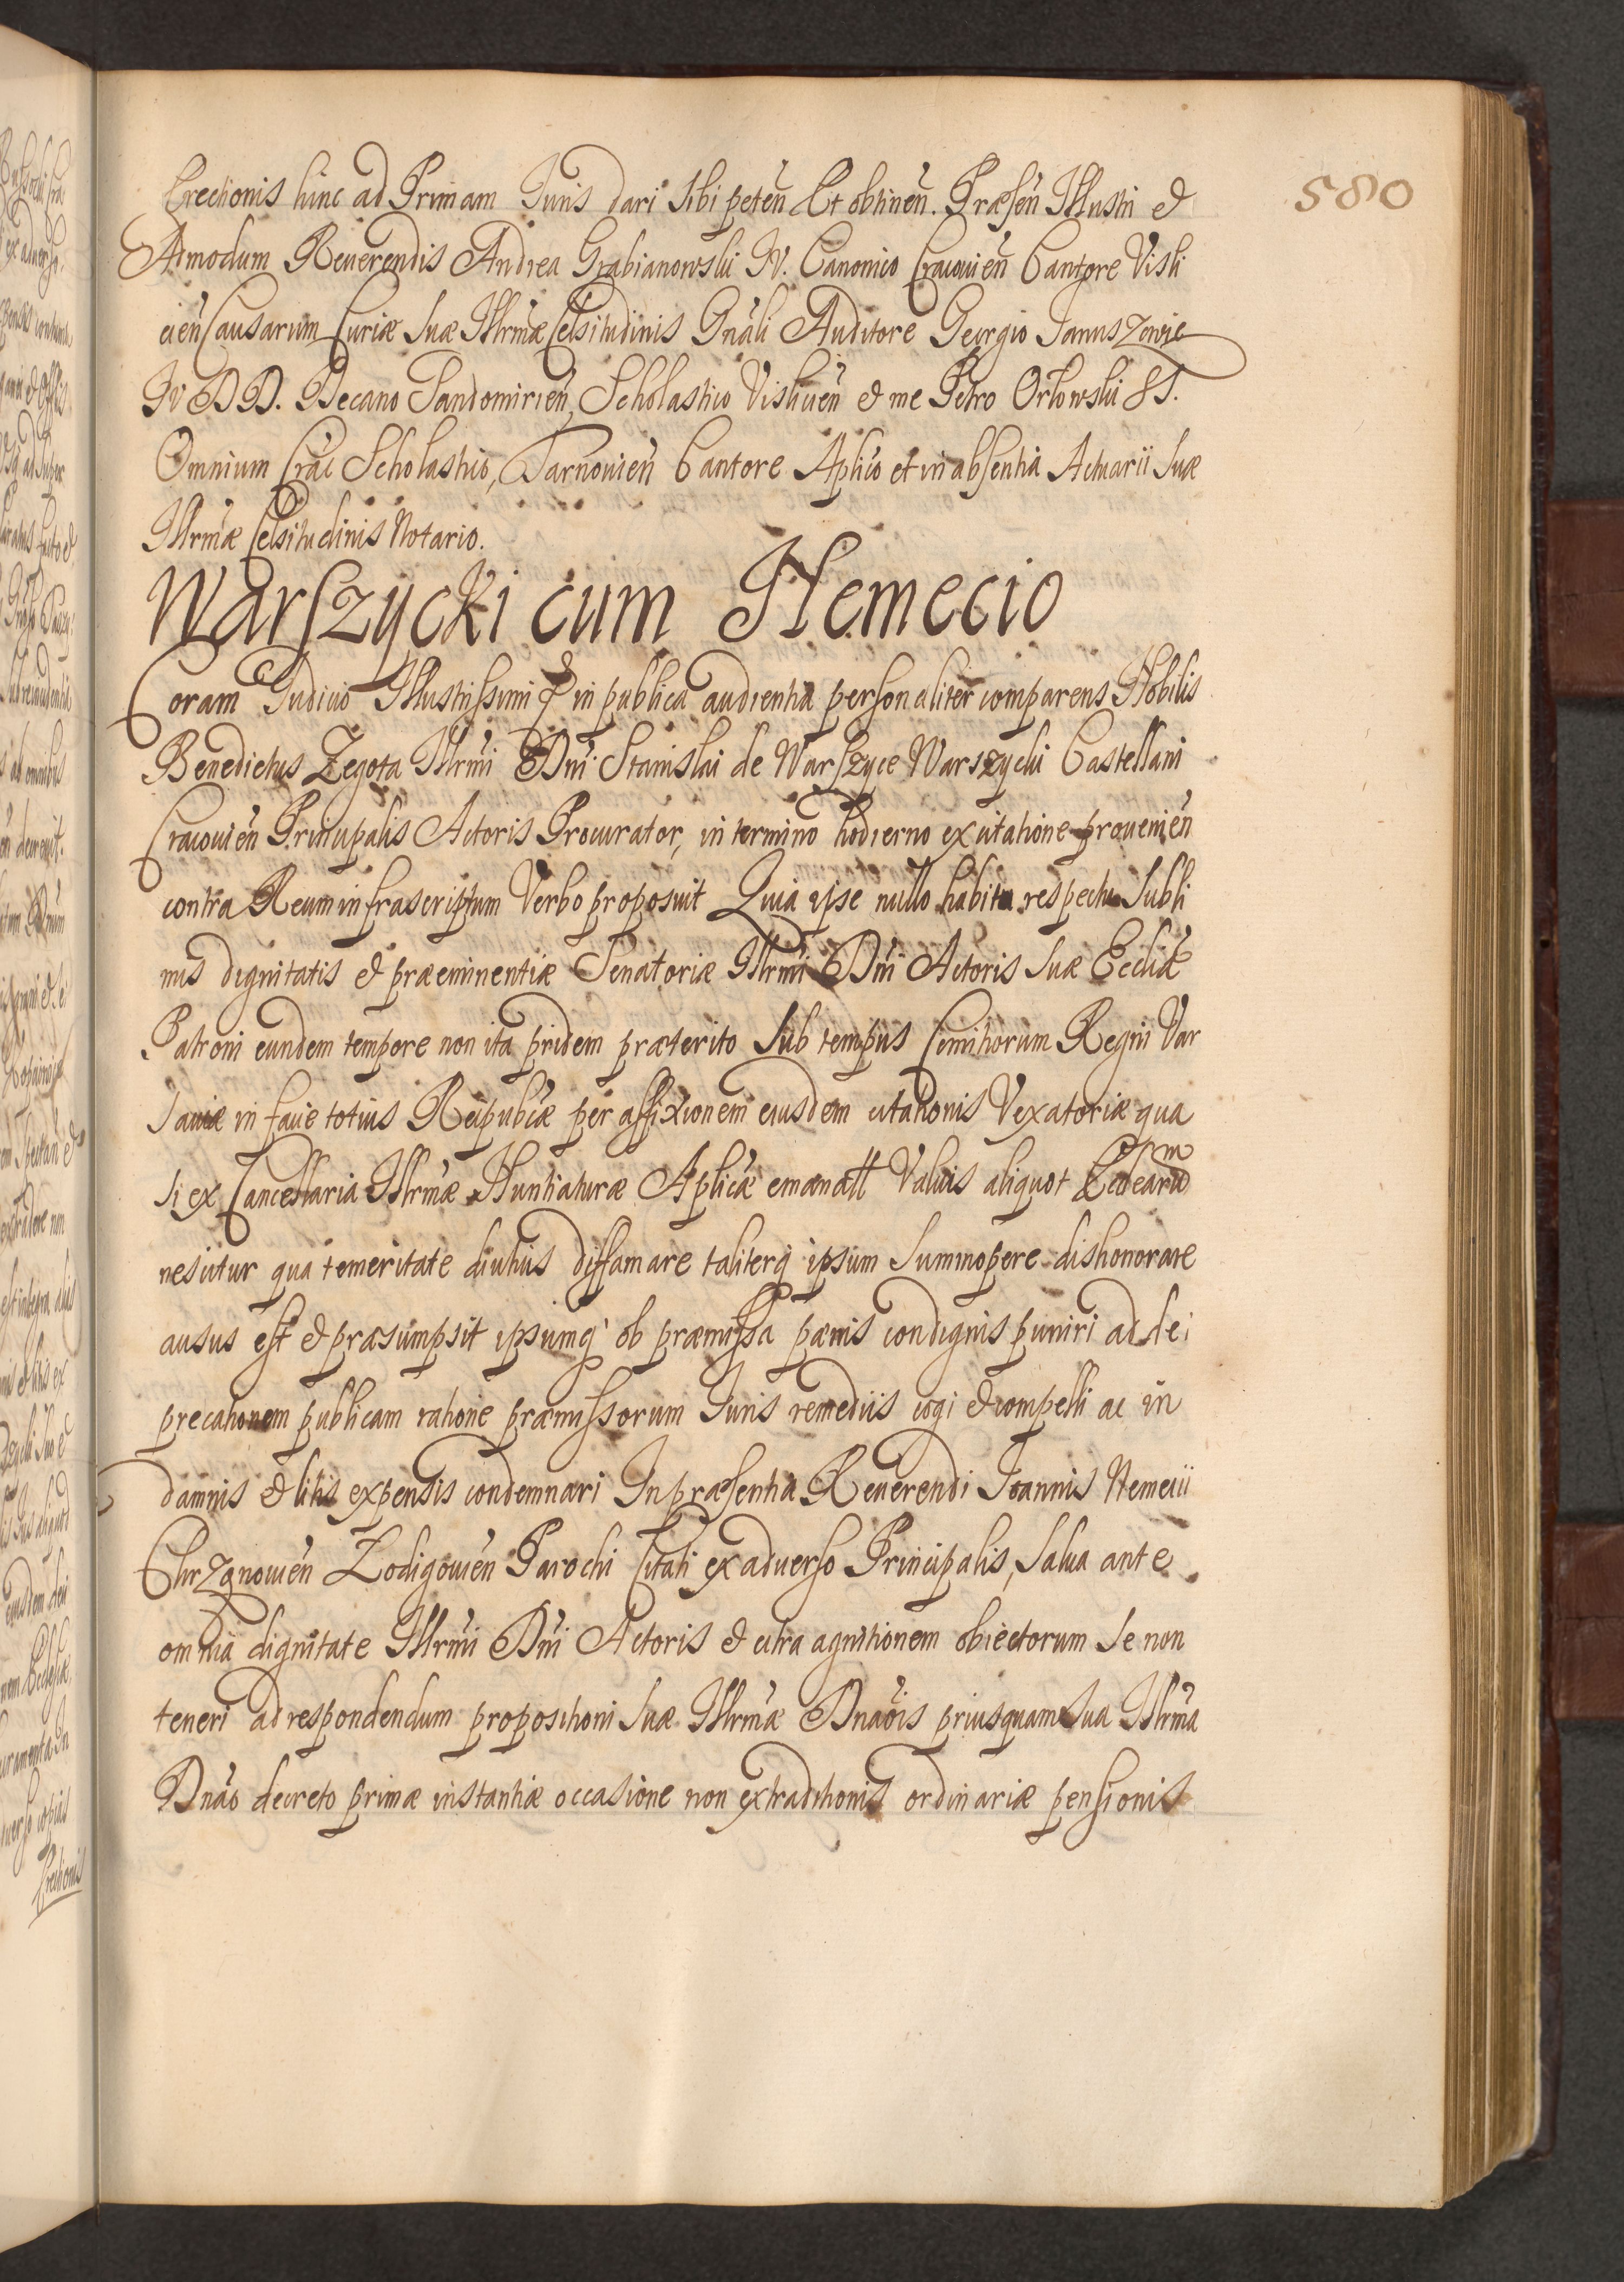 580
Erectionis hinc ad Primam Iuris dari sibi peteñ Et obtineñ. Præseñ Illustri et
Admodum Reuerendis Andrea Grabianowski IV. Canonico Cracouieñ Cantore Visli
cieñ Causarum Curiæ suæ Illrm̃æ Celsitudinis Gnãli Auditore Georgio Januszowic
IV DD. Decano Sandomirieñ, Scholastico Vislicieñ et me Petro Orłowski SS.
Omnium Crac̃ Scholastico, Tarnouieñ Cantore Aplico et in absentia Actuarii suæ
Illrmæ Celsitudinis Notario.
Warszycki cum Nemecio
Coram Iudicio Illustrissimi & in publica audientia personaliter comparens Nobilis
Benedictus Zegota Illrmi Dni Stanislai de Warszyce Warszycki Castellani
Cracouieñ Principalis Actoris Procurator, in termino hodierno ex citatione proueniẽn
contra Reum infrascriptum Verbo proposuit Quia ipse nullo habito respectu subli
mis dignitatis et præeminentiæ Senatoriæ Illrmi Dni Actoris suæ Eccliæ
Patroni eundem tempere non ita pridem præterito sub tempus Comitiorum Regni Var
sauiæ in facie totius Reipubcæ per affixionem eiusdem citationis Vexatoriæ qua
si ex Cancellaria Illrmæ Nuntiaturæ Aplicæ emanatt Valuis aliquot Ecclearum
nescitur qua temeritate diutius diffamare taliterq ipsum summopere dishonorare
ausus est et præsumpsit ipsumq ob præmissa pænis condignis puniri ad de
precationem publicam ratione præmissorum Iuris remediis cogi et compelli ac in
damnis et litis expensis condemnari In præsentia Reuerendi Ioannis Nemecii
Chrzgnouieñ Zodigouieñ Parochi Citati ex aduerso Principalis, salua ante
omnia dignitate Illrmi Dni Actoris et citra agnitionem obiectorum se non
teneri ad respondendum propositioni suæ Illrmæ Dnaõis priusquam sua Illrma
Dnão decreto primæ instantiæ occasione non extraditionis ordinariæ pensionis